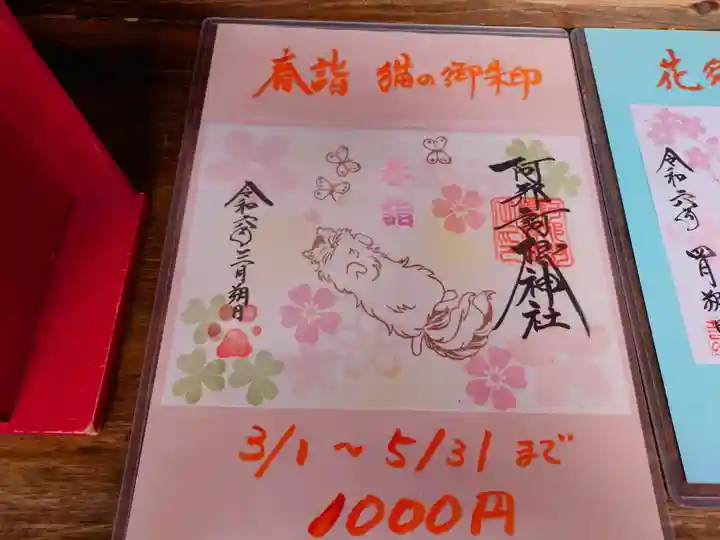 春詣 猫の御朱印
春詣
阿邪訶根神社
令和六年三月朔日
3/1～5/31まで
1000円
花
令和六年
四月朔